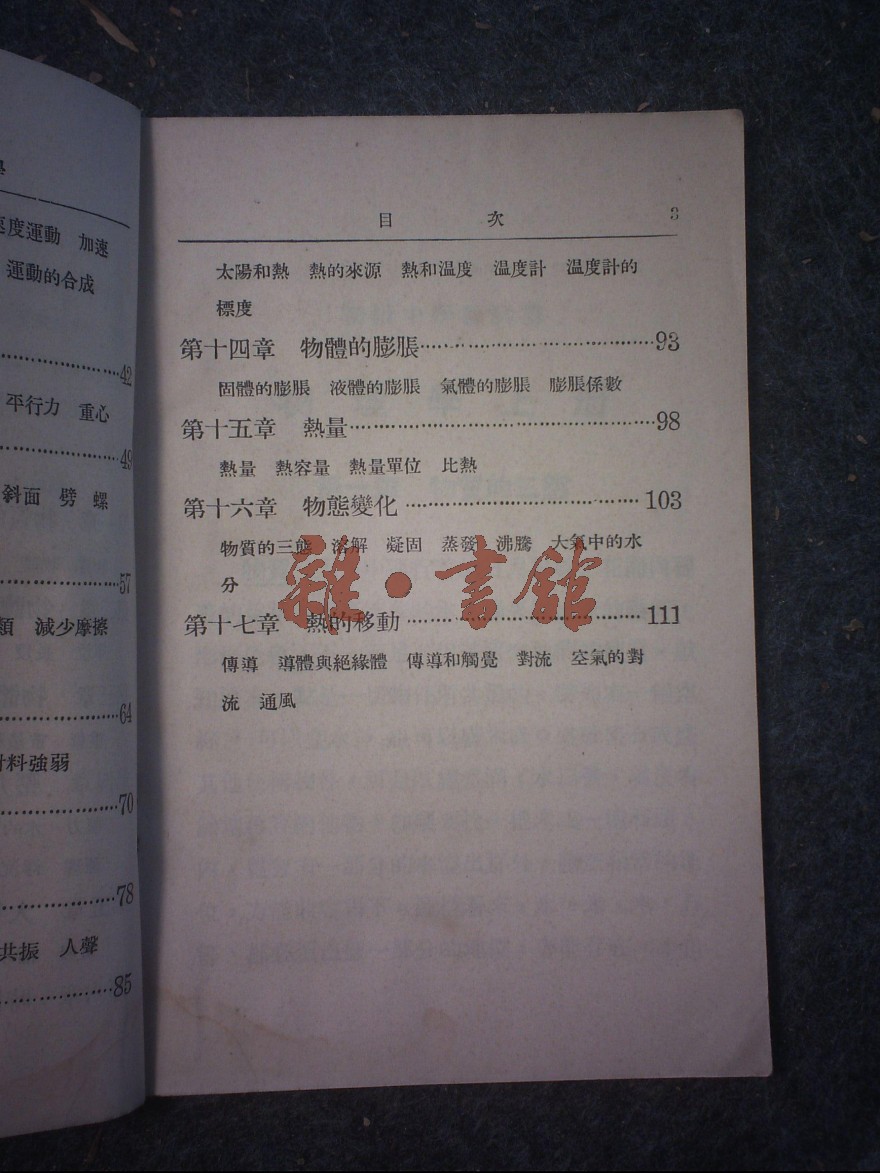 速度運動 加速
運動的合成
42
平行力 重心
49
斜面 劈 螺
57
減少摩擦
64
材料強弱
70
78
共振 人聲
85
目 次 3
太陽和熱 熱的來源 熱和温度 温度計 温度計的
標度
第十四章 物體的膨脹……93
固體的膨脹 液體的膨脹 氣體的膨脹 膨脹係數
第十五章 熱量……98
熱量 熱容量 熱量單位 比熱
第十六章 物態變化……103
物質的三態 溶解 凝固 蒸發 沸騰 大氣中的水
分
第十七章 熱的移動……111
傳導 導體與絕緣體 傳導和觸覺 對流 空氣的對
流 通風
雜·書館